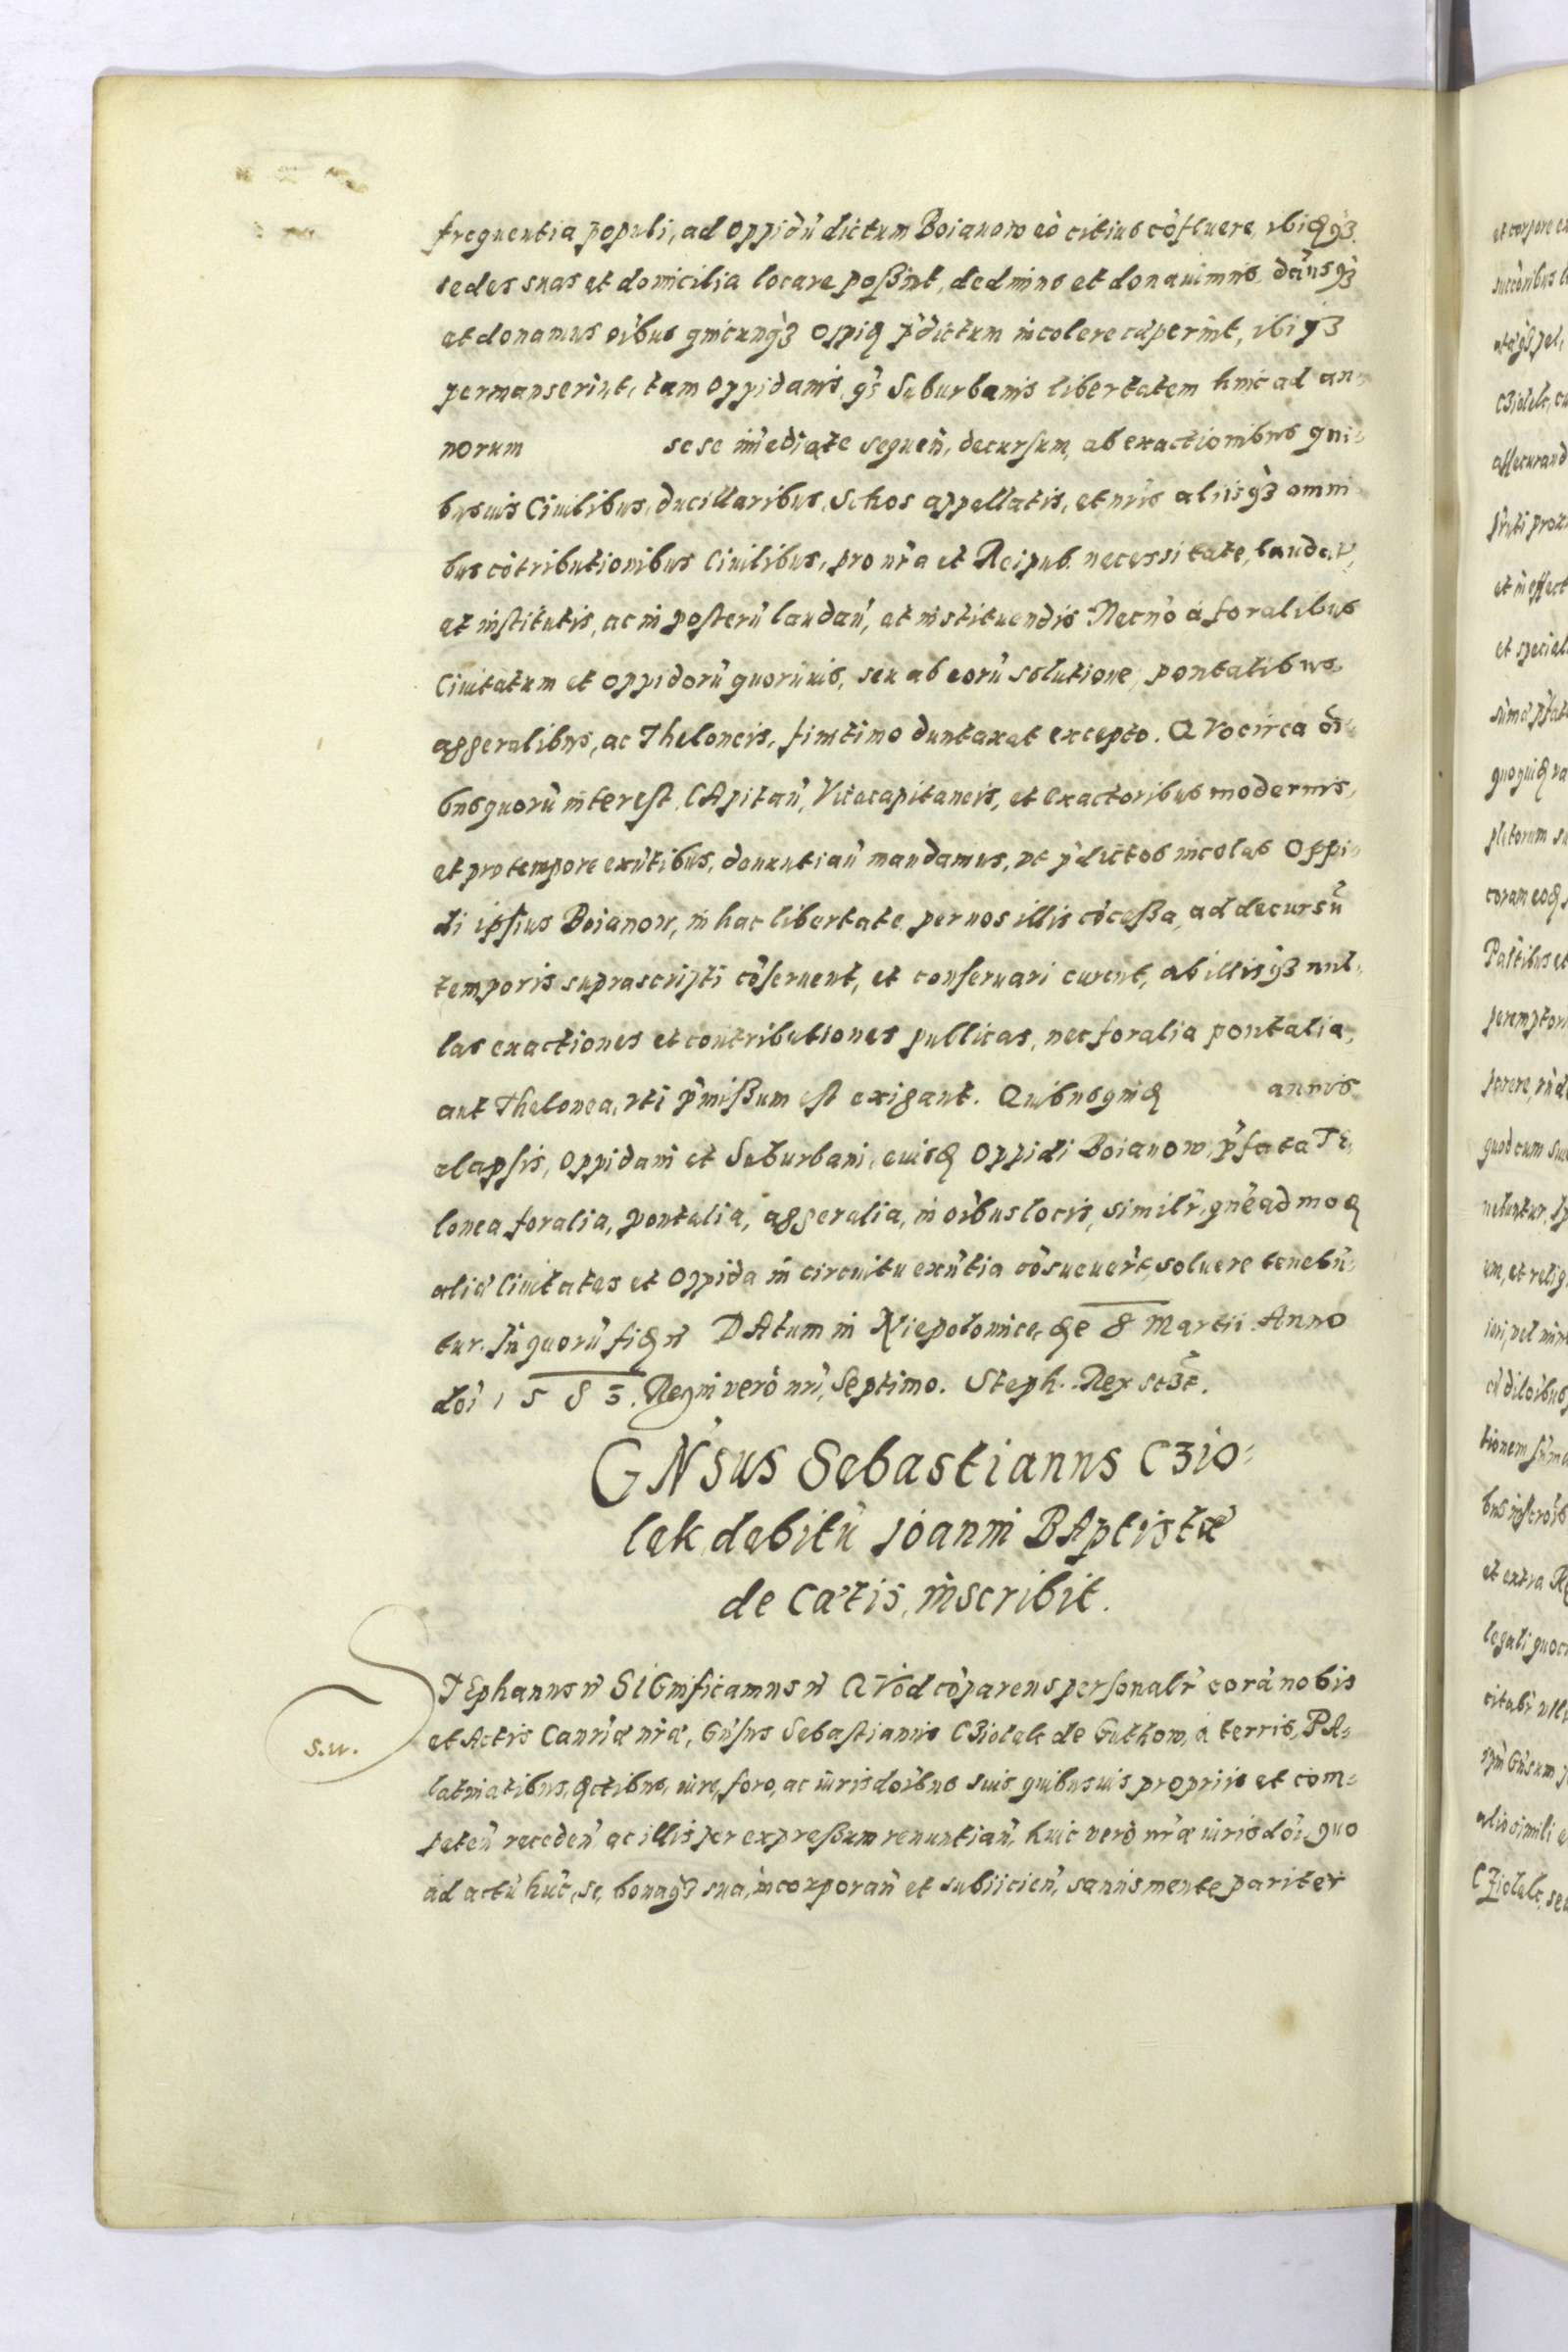 frequentia populi, ad oppidũ dictum Boianow eò citius cõfluere, ibidqȝ
sedes suas et domicilia locare poßint, dedimus et donauimus, dãusqȝ
et donamus oĩbus quicunqȝ oppid p̃dictum incolere cæperint, ibiqȝ
permanserint, tam oppidanis, q̃ Suburbanis libertatem hinc ad an-
norum sese im̃ediate sequeñ, decursum, ab exactionibus qui-
busuis Ciuilibus, ducillaribus, Schos appellatis, et nr̃is aliisqȝ omni
bus cõtributionibus Ciuilibus, pro nr̃a et Reipub. necessitate, laudat,
et institutis, ac in posterũ laudañ, et instituendis Necnõ à foralibus
Ciuitatum et oppidorũ quorũuis, seu ab eorũ solutione, pontalibus
aggeralibus, ac Theloneis, finitimo duntaxat excepto. QVocirca oĩ-
bus quorũ interest, CApitañ, Vicecapitaneis, et exactoribus modernis,
et pro tempore exñtibus, denuntiañ mandamus, vt p̃dictos incolas Oppi-
di ipsius Boianow, in hac libertate per nos illis cõceßa, ad decursũ
temporis suprascripti cõseruent, et conseruari curent, ab illisqȝ nul-
las exactiones et contributiones publicas, nec foralia pontalia,
aut Thelonea, vti p̃mißum est exigant. Quibusquid annis
elapsis, oppidani et Suburbani, euisd Oppidi Boianow, p̃fata Te-
lonea foralia, pontalia, aggeralia, in oĩbus locis, similr̃, quẽadmod
aliæ Ciuitates et oppida in circuitu exñtia cõsueuer̃t, soluere tenebũ-
tur. In quorũ fid ñ DAtum in Niepolomice, die 8 Martii Anno
doĩ 1583. Regni verò nr̃i, Septimo. Steph. Rex sczt.
GÑsus Sebastianus Cȝio-
lek, debitũ Joanni BAptistæ
de Catis, inscribit.
STEphanus ñ SIGnificamus ñ QVòd cõparens personalr̃ corã nobis
s.w.
et Actis Canr̃iæ nr̃æ, Gñsus Sebastianus Cȝiolek de Guthow, à terris, PA-
latinatibus, dictibus, iure, foro, ac iurisdoĩbus suis quibusuis propriis et com-
peteñ recedeñ ac illis per expreßum renuntiañ, huic verò nr̃æ iurisdoĩ, quo
ad actũ hũc, se, bonaqȝ sua, incorporañ et subiicieñ, sanus mente pariter